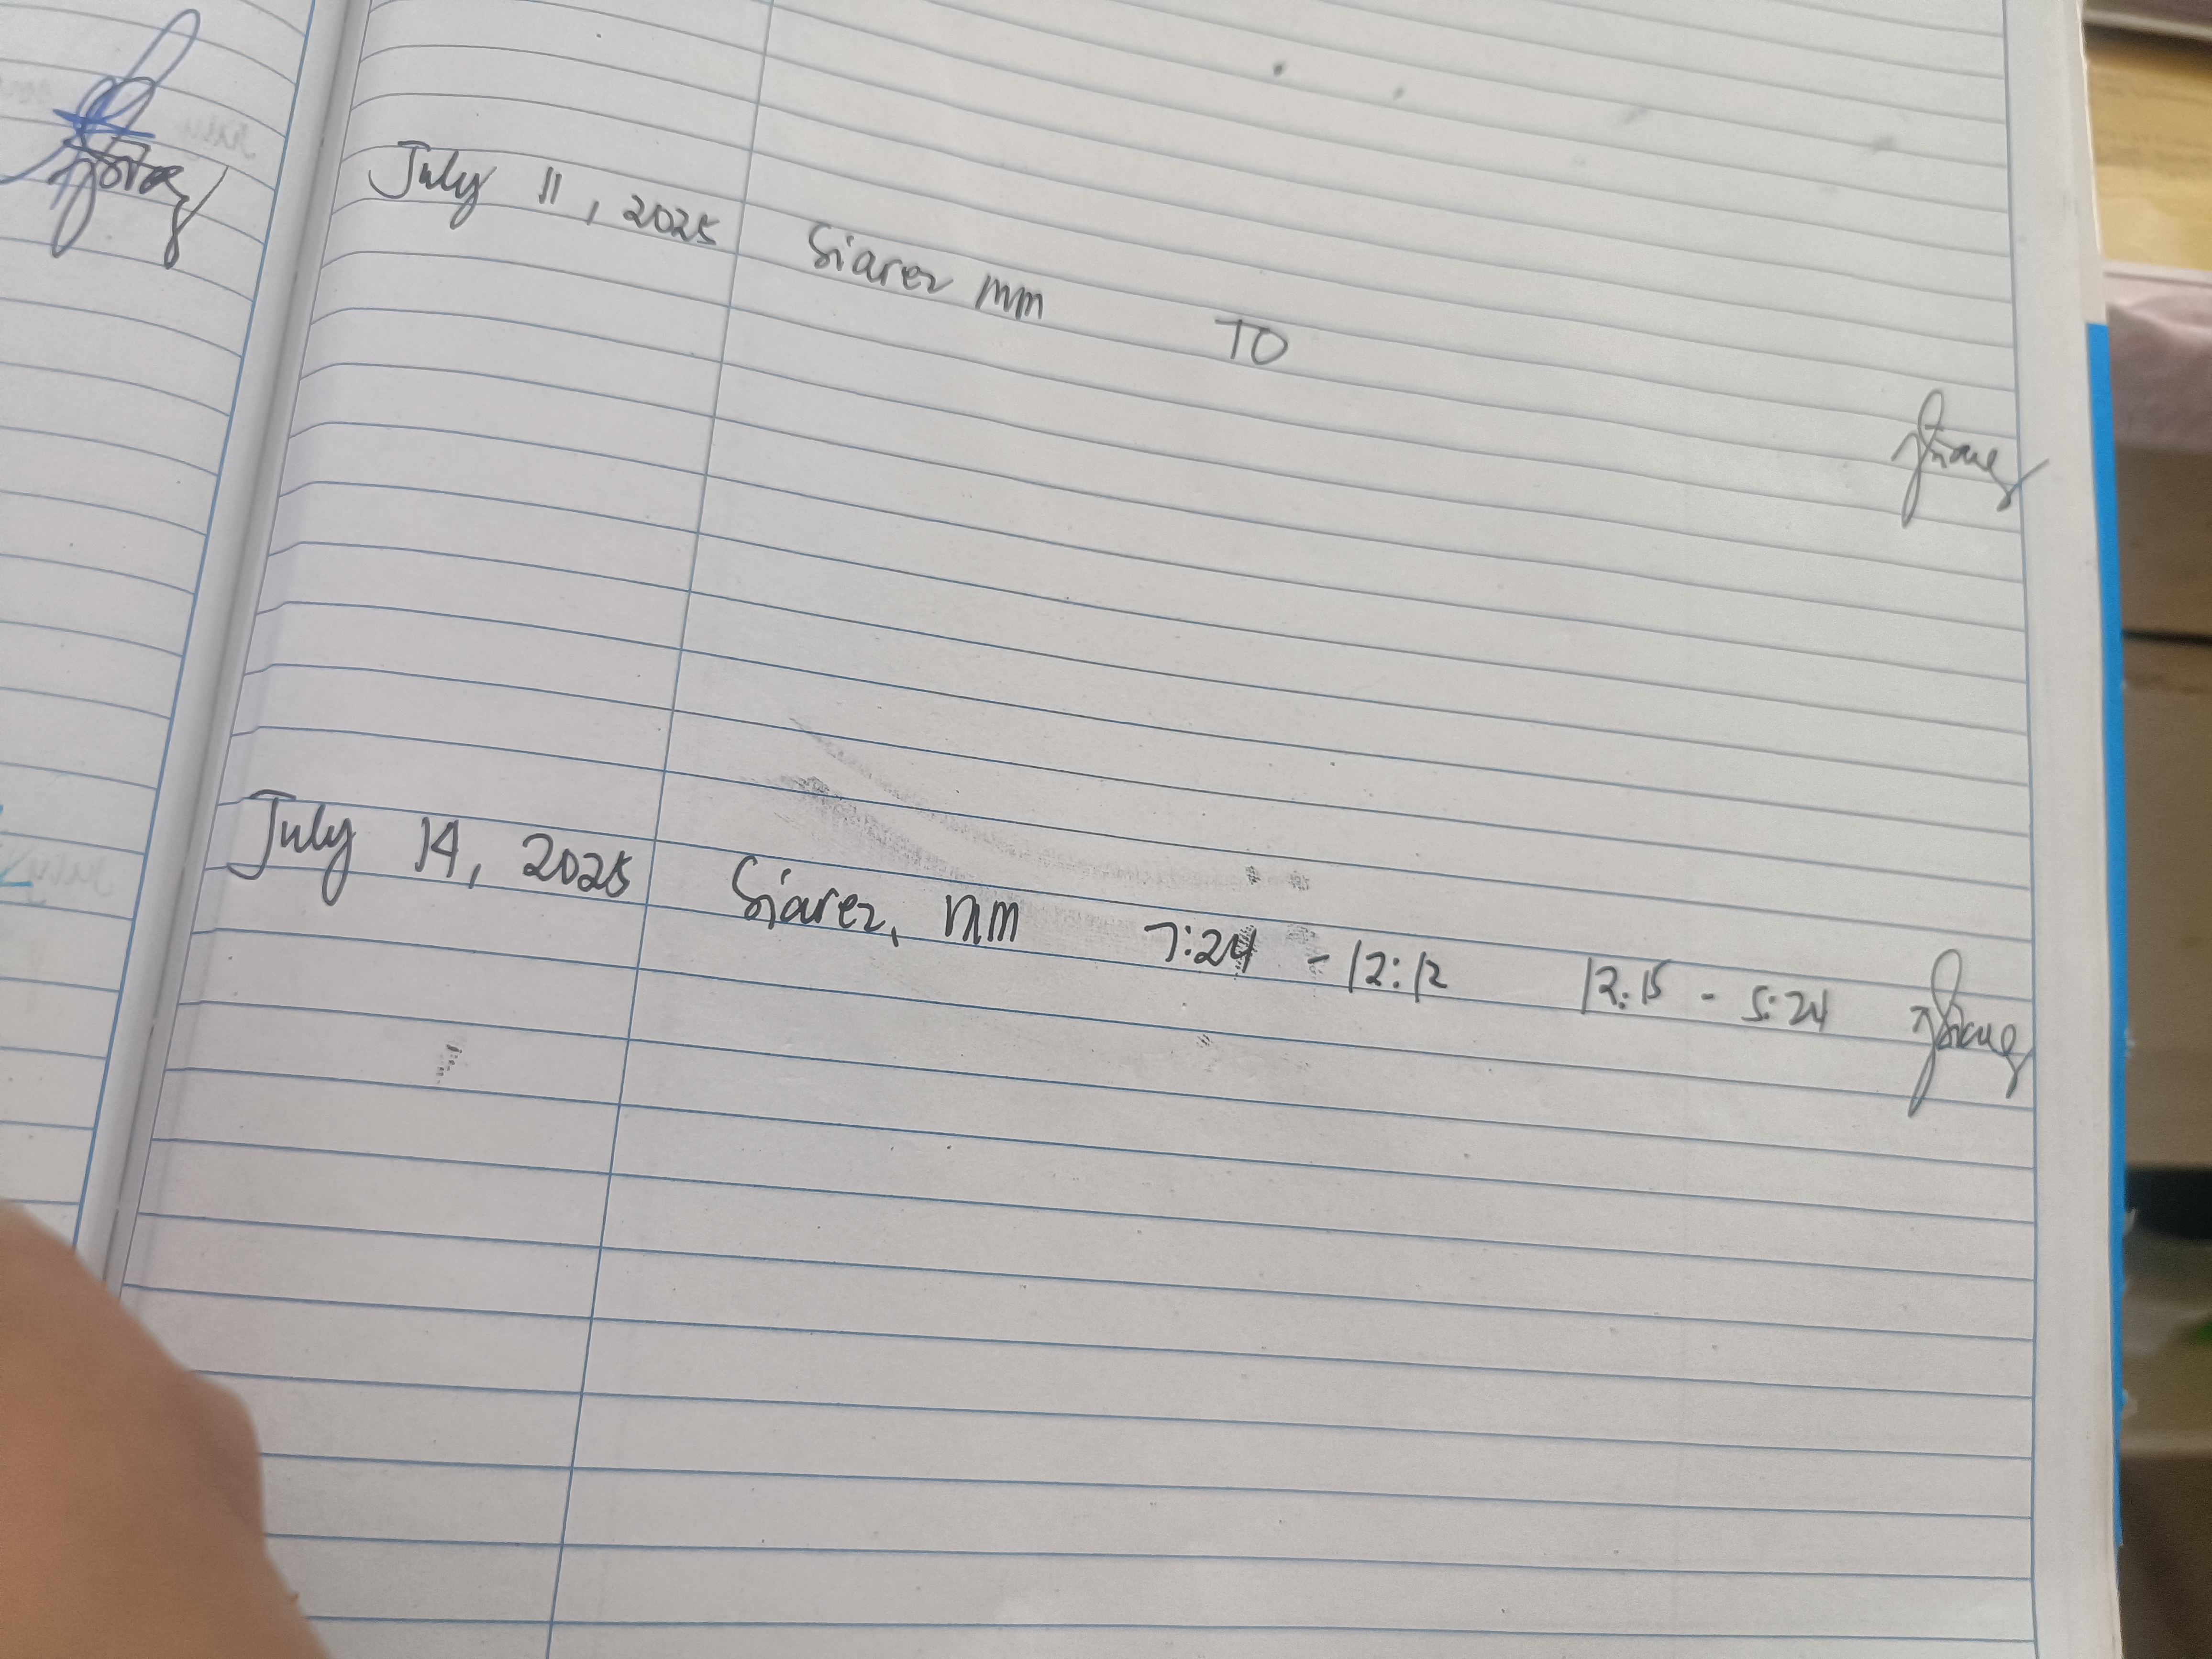 July 11, 2025 Siarez MM TO
July 14, 2025 Siarez, MM 7:24 - 12:12 12:15 - 5:24